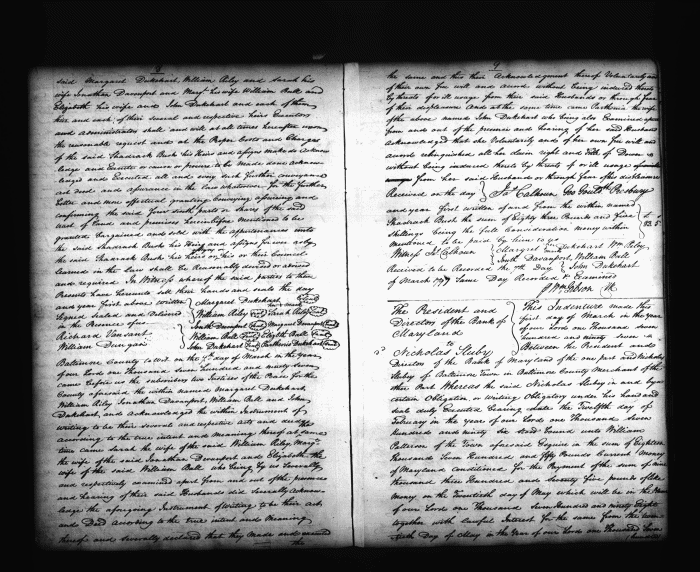 said Margaret Dukehart, William Riley and Sarah his
wife Jonathan Davenport and Margt his wife William Ball and
Elizabeth his wife and John Dukehart and each of them
his and each of their several and respective heirs Executors
and administrators shall and will at all times hereafter upon
the reasonable request and at the Proper Costs and Charges
of the said Shadrach Bosk his Heirs and assigns make do acknow
ledge and Execute or cause or procure to be made done acknow
ledged and Executed all and every such further conveyance
and deed and assurance in the Law whatsoever for the further
better and more effectual granting Conveying assuring and
confirming the said four sixth parts or shares of the said
tract of Land and premises hereinbefore mentioned to be
granted bargained and sold with the appurtenances unto
the said Shadrach Bosk his Heirs and assigns forever as by
the said Shadrach Bosk his heirs or his or their Council
learned in the Law shall be Reasonably devised or advised
and required In Witness whereof the said parties to these
Presents have hereunto set their hands and seals the day
and year first above written Margaret Dukehart
Signed Sealed and Delivered William Riley Sarah Riley
in the Presence of us Jonth Davenport Margaret Davenport
Richard William Ball Elizth Ball
William Dungan John Dukehart Parthenia Dukehart
Baltimore County to wit on the 7th day of March in the year
of our Lord one Thousand seven hundred and ninety seven
came before us the subscribers two Justices of the Peace for the
County aforesaid the within named Margaret Dukehart,
William Riley Jonathan Davenport, William Ball and John
Dukehart, and Acknowledged the within Instrument of
writing to be their several and respective acts and deeds
according to the true intent and meaning thereof at same
time came Sarah the wife of the said William Riley Margt
the wife of the said Jonathan Davenport and Elizabeth the
wife of the said William Ball who being by us Severally
and respectively examined apart from and out of the presence
and hearing of their said Husbands did Severally Acknow
ledge the aforegoing Instrument of Writing to be their act
and Deed according to the True intent and Meaning
thereof and severally declared that they made and
the
9
the same and this their Acknowledgment thereof Voluntarily and
of their own free will and accord without being induced thereto
by threats of or ill usage from their said Husbands or through fear
of their displeasure And at the same time came Parthenia the wife
of the above named John Dukehart who being also Examined apart
from and out of the presence and hearing of her said Husband
Acknowledged that she Voluntarily and of her own free will and
accord relinquished all her claim right and Title of Dower
without being induced thereto by threats of or ill usage
from her said Husband or through fear of his displeasure
Received on the day Js Calhoun Geo Gouldh Presbury
and year first written of and from the within named
Shadrach Bosk the sum of Eighty three Pounds and five £ s
shillings being the full Consideration Money within 83.5
mentioned to be paid by him to us
Witness Js Calhoun Margaret Dukehart Wm Riley,
Jonth Davenport, William Ball
Received to be Recorded the 7th Day John Dukehart
of March 1797 Same Day Recorded & Examined
Wm Gibson Clk
The President and
Directors of the Bank of
Maryland
to
Nicholas Sluby
This Indenture made this
first day of March in the year
of our Lord one Thousand seven
hundred and ninety seven
Between the President and
Directors of the Bank of Maryland of the one part and Nicholas
Sluby of Baltimore Town in Baltimore County Merchant of the
other Part Whereas the said Nicholas Sluby in and by a
certain Obligation or writing Obligatory under his hand and
seal duly Executed bearing date the Twelfth day of
February in the year of our Lord one Thousand Seven
hundred and ninety stood bound unto William
Patterson of the Town aforesaid Esquire in the sum of Eighteen
Thousand Seven Hundred and fifty Pounds Current Money
of Maryland conditioned for the Payment of the sum of nine
thousand three Hundred and Seventy five pounds of like
Money on the Twentieth day of May which will be in the
of our Lord one Thousand Seven Hundred and ninety Eight
together with Lawful Interest for the same from the
tieth Day of May in the Year of our Lord one Thousand Seven
hundred